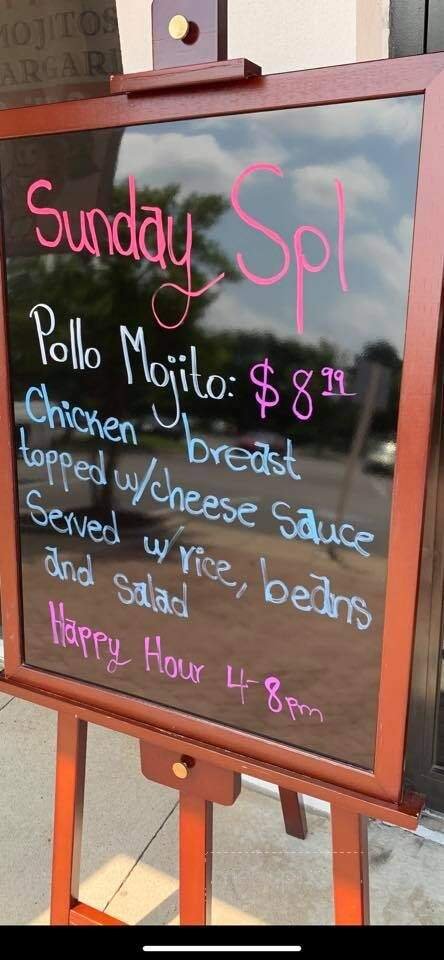 MOJITOS
Sunday Spl
Pollo Mojito: $8.99
Chicken breast
topped w/cheese sauce
Served w/rice, beans
and salad
Happy Hour 4-8pm